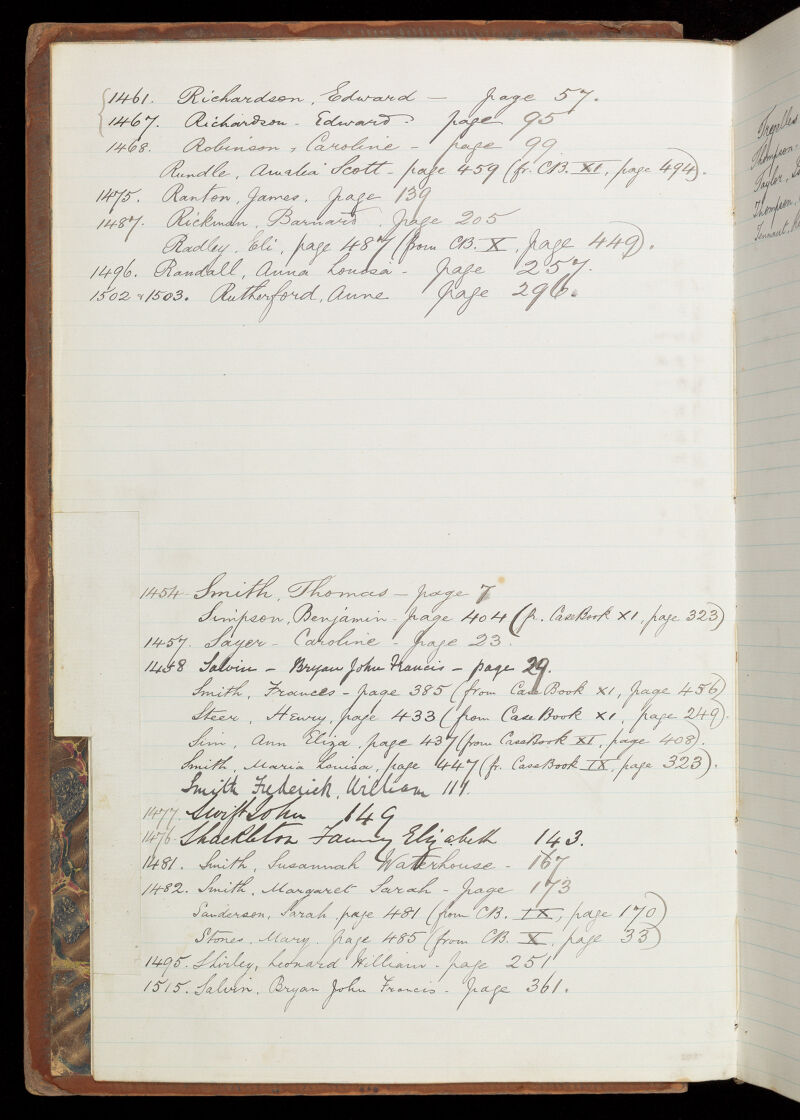 1461. Richardson, Edward — page 57.
1467. Richardson - Edward - page 95
1468. Robinson, Caroline - page 99
Rundle, Amalia Scott - page 459 (fr. CB. XI, page 494).
1475. Ranton, James, page 139
1487. Rickman, Barnard, page 205
Radley, Eli, page 487 (from CB. X, page 449).
1496. Randall, Anna Louisa - page 257.
1502 & 1503. Rutherford, Anne page 296.
1454. Smith, Thomas — page 7
Simpson, Benjamin - page 404 (fr. CaseBook XI, page 323)
1457. Sayer - Caroline - page 23.
1458 Salvin - Bryan John Francis - page 29.
Smith, Frances - page 385 (from CaseBook XI, page 456)
Steer, Henry, page 433 (from CaseBook XI, page 249).
Sim, Ann Eliza, page 437 (from CaseBook XI, page 408).
Smith, Maria Louisa, page 447 (fr. CaseBook IX, page 323).
Smith Frederick, William 111.
1477. Swift John 149
1476. Shackleton Fanny Elizabeth 143.
1481. Smith, Susannah Waterhouse - 167
1482. Smith, Margaret Sarah - page 173
Sanderson, Sarah, page 481 (from CB. IX, page 170)
Stones, Mary. page 485 (from CB. X, page 33)
1495. Shirley, Leonard William - page 251
1515. Salvin, Bryan John Francis - page 361.
Thompson,
Taylor,
Thompson,
Tennant,